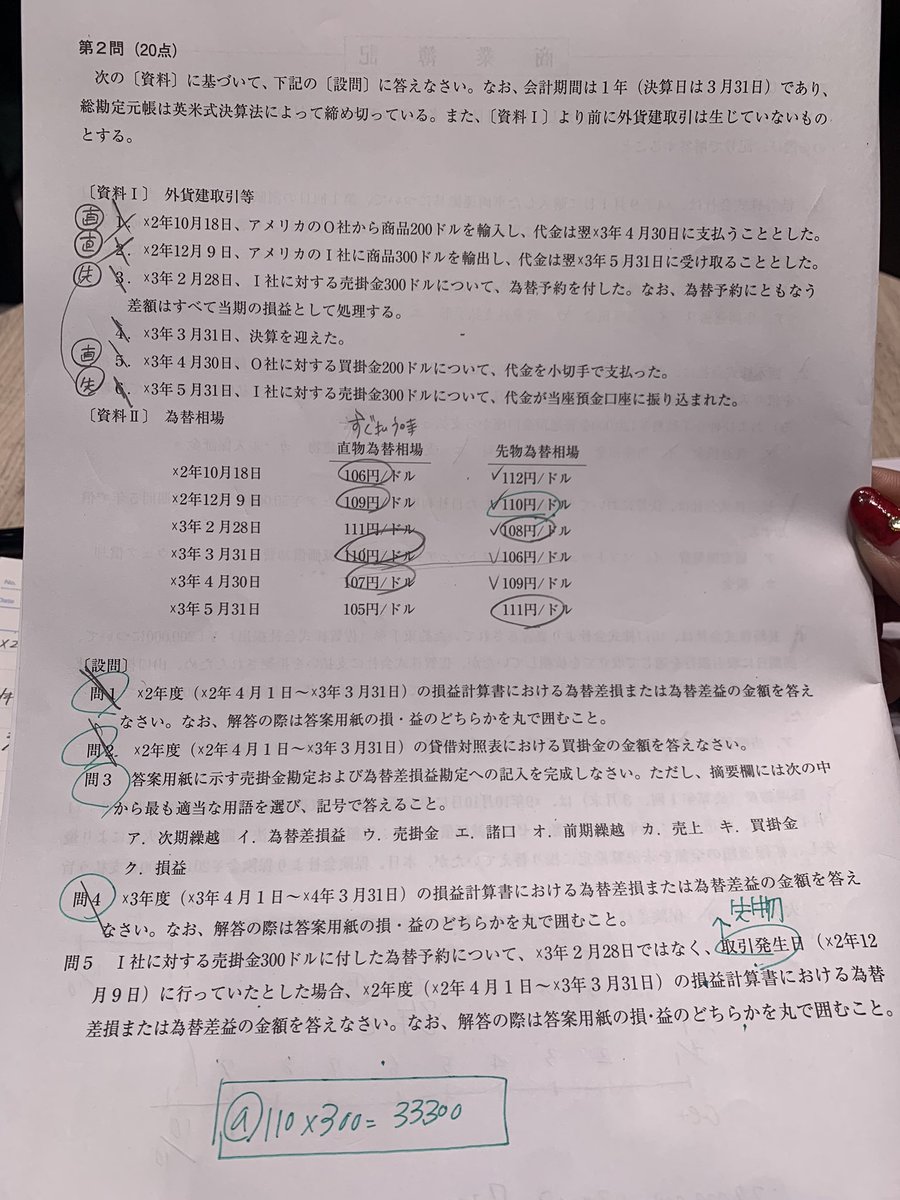 第２問（20点）
次の〔資料〕に基づいて、下記の〔設問〕に答えなさい。なお、会計期間は１年（決算日は３月31日）であり、
総勘定元帳は英米式決算法によって締め切っている。また、〔資料Ⅰ〕より前に外貨建取引は生じていないもの
とする。
〔資料Ⅰ〕 外貨建取引等
直 １．×2年10月18日、アメリカのＯ社から商品200ドルを輸入し、代金は翌×3年４月30日に支払うこととした。
直 ２．×2年12月９日、アメリカのＩ社に商品300ドルを輸出し、代金は翌×3年５月31日に受け取ることとした。
先 ３．×3年２月28日、Ｉ社に対する売掛金300ドルについて、為替予約を付した。なお、為替予約にともなう
差額はすべて当期の損益として処理する。
４．×3年３月31日、決算を迎えた。
直 ５．×3年４月30日、Ｏ社に対する買掛金200ドルについて、代金を小切手で支払った。
先 ６．×3年５月31日、Ｉ社に対する売掛金300ドルについて、代金が当座預金口座に振り込まれた。
〔資料Ⅱ〕 為替相場
直物為替相場 先物為替相場
×2年10月18日 106円/ドル 112円/ドル
×2年12月９日 109円/ドル 110円/ドル
×3年２月28日 111円/ドル 108円/ドル
×3年３月31日 110円/ドル 106円/ドル
×3年４月30日 107円/ドル 109円/ドル
×3年５月31日 105円/ドル 111円/ドル
〔設問〕
問１ ×2年度（×2年４月１日～×3年３月31日）の損益計算書における為替差損または為替差益の金額を答え
なさい。なお、解答の際は答案用紙の損・益のどちらかを丸で囲むこと。
問２ ×2年度（×2年４月１日～×3年３月31日）の貸借対照表における買掛金の金額を答えなさい。
問３ 答案用紙に示す売掛金勘定および為替差損益勘定への記入を完成しなさい。ただし、摘要欄には次の中
から最も適当な用語を選び、記号で答えること。
ア．次期繰越 イ．為替差損益 ウ．売掛金 エ．諸口 オ．前期繰越 カ．売上 キ．買掛金
ク．損益
問４ ×3年度（×3年４月１日～×4年３月31日）の損益計算書における為替差損または為替差益の金額を答え
なさい。なお、解答の際は答案用紙の損・益のどちらかを丸で囲むこと。
先物
問５ Ｉ社に対する売掛金300ドルに付した為替予約について、×3年２月28日ではなく、取引発生日（×2年12
月９日）に行っていたとした場合、×2年度（×2年４月１日～×3年３月31日）の損益計算書における為替
差損または為替差益の金額を答えなさい。なお、解答の際は答案用紙の損・益のどちらかを丸で囲むこと。
@110×300=33300